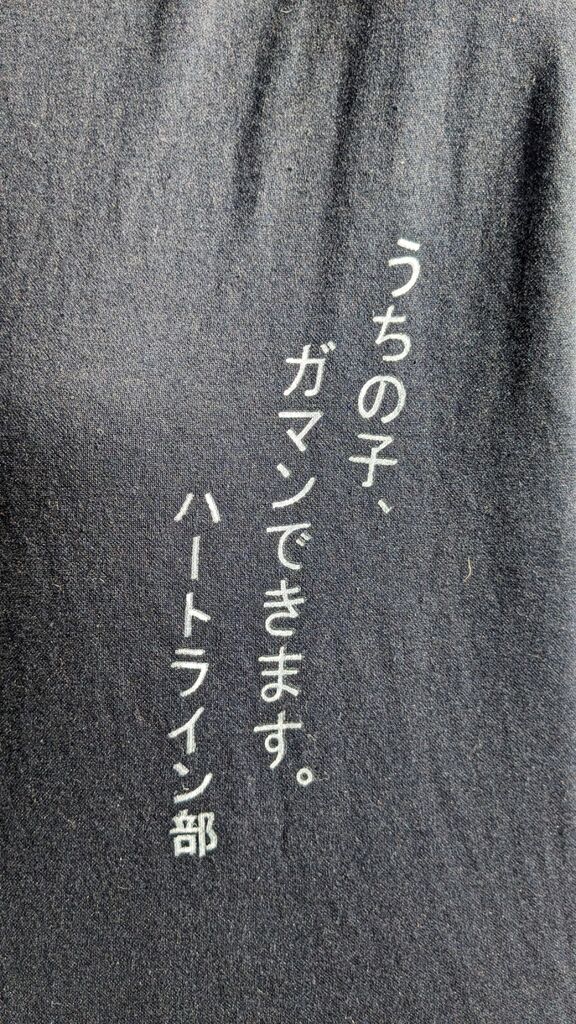 うちの子、
ガマンできます。
ハートライン部